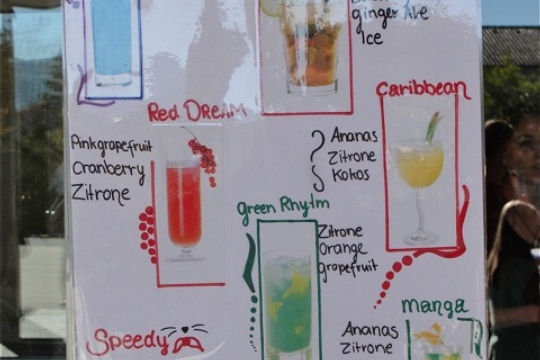 ginger Ale
Ice
Caribbean
Red DREAM
Pinkgrapefruit
Cranberry
Zitrone
Ananas
Zitrone
Kokos
green Rhytm
Zitrone
Orange
grapefruit
manga
Speedy
Ananas
Zitrone